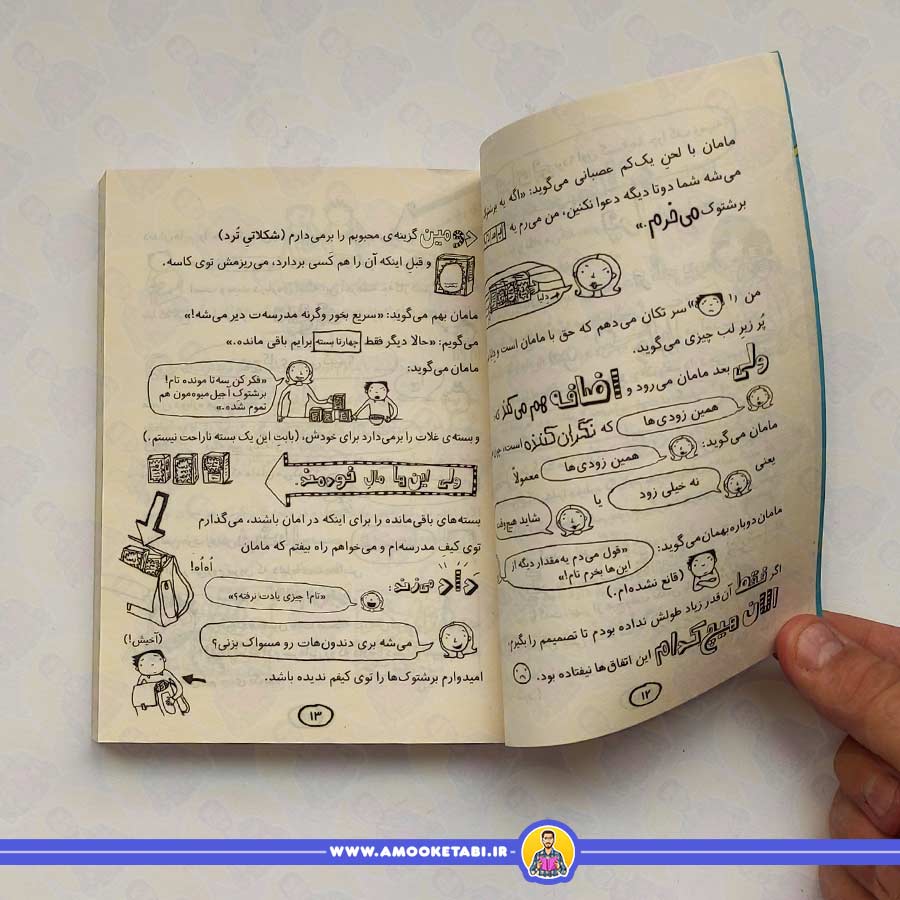 مامان با لحنِ یک‌کم عصبانی می‌گوید: «اگه یه برشتوک
می‌شه شما دوتا دیگه دعوا نکنین، من می‌رم یه
برشتوک می‌خرم.»
من را سر تکان می‌دهم که حق با مامان است و
پُر زیرِ لب چیزی می‌گوید.
ولی بعد مامان می‌رود و اضافه هم می‌کند که
همین زودی‌ها
که نگران‌کننده است، چون
مامان می‌گوید: همین زودی‌ها معمولاً
یعنی نه خیلی زود یا شاید هیچ‌وقت
مامان دوباره بهمان می‌گوید:
«قول می‌دم یه مقدار دیگه از
این‌ها بخرم تام!»
(قانع نشده‌ام.)
اگر فقط آن‌قدر زیاد طولش نداده بودم تا تصمیمم را بگیرم،
الان هیچ‌کدام این اتفاق‌ها نیفتاده بود.
۱۲
دومین گزینه‌ی محبوبم را برمی‌دارم (شکلاتیِ تُرد)
و قبلِ اینکه آن را هم کَسی بردارد، می‌ریزمش توی کاسه.
مامان بهم می‌گوید: «سریع بخور وگرنه مدرسه‌ت دیر می‌شه!»
می‌گویم: «حالا دیگر فقط چهارتا بسته برایم باقی مانده.»
مامان می‌گوید:
«فکر کن سه‌تا مونده تام!
برشتوک آجیل‌میوه‌مون هم
تموم شده.»
و بسته‌ی غلات را برمی‌دارد برای خودش، (بابتِ این یک بسته ناراحت نیستم.)
ولی این‌ها مالِ خودمند.
بسته‌های باقی‌مانده را برای اینکه در امان باشند، می‌گذارم
توی کیف مدرسه‌ام و می‌خواهم راه بیفتم که مامان
داد می‌زند: اُه‌اُه!
«تام! چیزی یادت نرفته؟»
می‌شه بری دندون‌هات رو مسواک بزنی؟
(آخیش!)
امیدوارم برشتوک‌ها را توی کیفم ندیده باشد.
۱۳
WWW.AMOOKETABI.IR